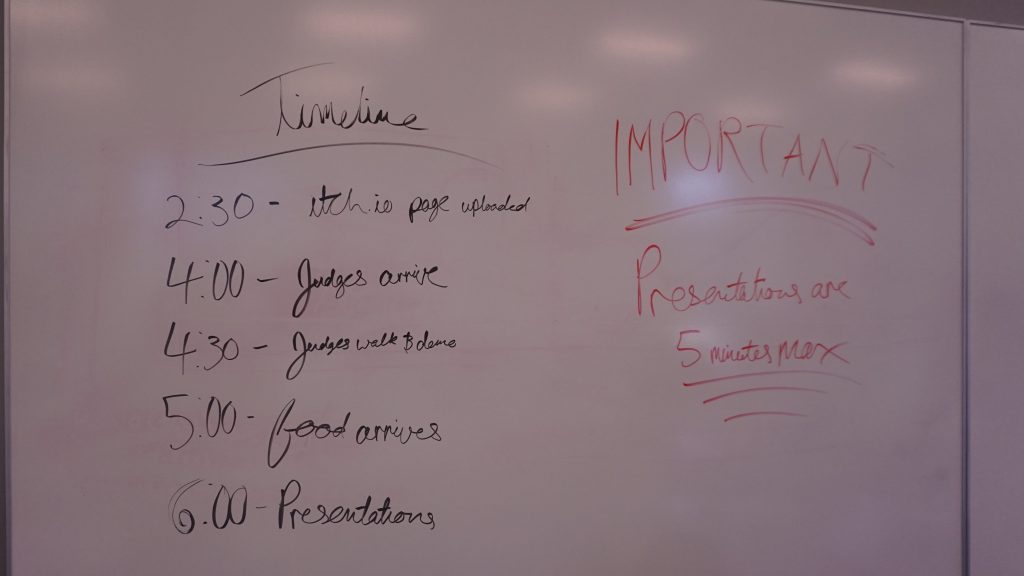 Timeline
2:30 - itch.io page uploaded
4:00 - Judges arrive
4:30 - Judges walk & demo
5:00 - food arrives
6:00 - Presentations
IMPORTANT
Presentations are
5 minutes max